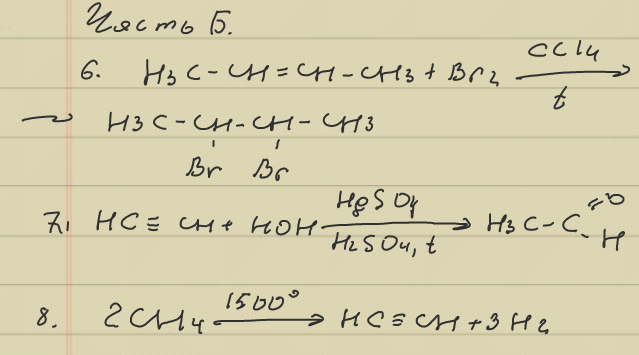 Часть Б.
6. H3C-CH=CH-CH3 + Br2 CCl4 t
→ H3C-CH-CH-CH3
Br Br
7. HC≡CH + HOH HgSO4 H2SO4, t → H3C-C=O H
8. 2CH4 1500° → HC≡CH + 3H2